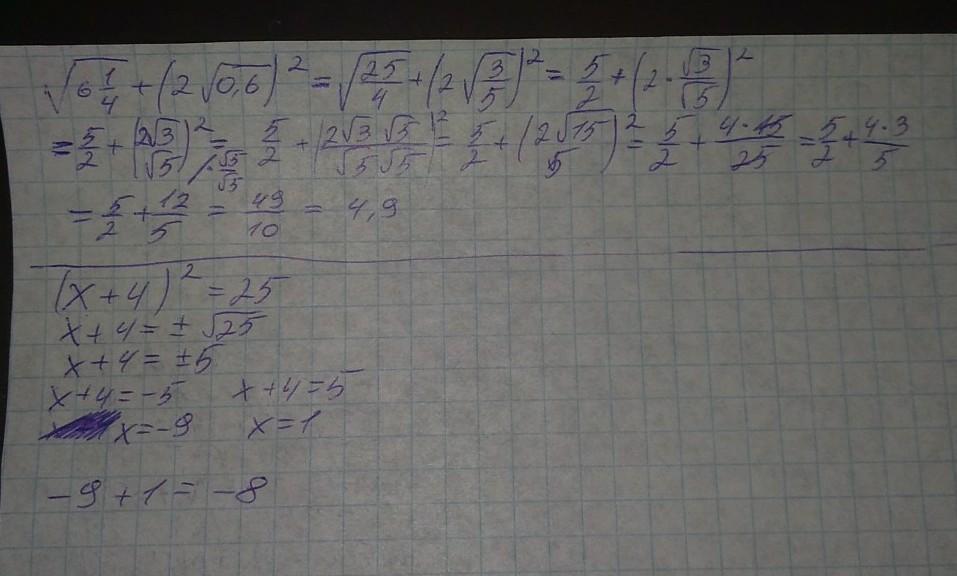 √(6 1/4) + (2√0,6)² = √(25/4) + (2√(3/5))² = 5/2 + (2·√3/√5)²
= 5/2 + (2√3/√5)² ·√5/√5 = 5/2 + (2√3 √5/√5 √5)² = 5/2 + (2√15/5)² = 5/2 + 4·15/25 = 5/2 + 4·3/5
= 5/2 + 12/5 = 49/10 = 4,9
(x+4)² = 25
x+4 = ± √25
x+4 = ±5
x+4 = -5 x+4 = 5
x = -9 x = 1
-9 + 1 = -8